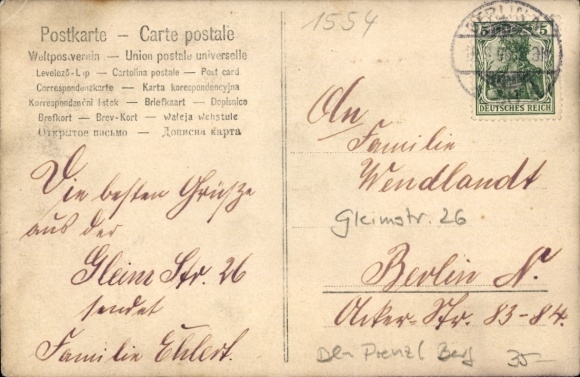 1554
Postkarte — Carte postale
Weltpostverein — Union postale universelle
Levelező-Lap — Cartolina postale — Post card
Correspondenzkarte — Karta korespondencyjna
Korrespondanční lístek — Briefkaart — Dopisnice
Brefkort — Brev-Kort — Wałeja wehstule
Открытое письмо — Дописна карта
BERLIN
5 5
DEUTSCHES REICH
Die besten Grüsze
aus der
Gleim Str. 26
sendet
Familie Ehlert.
An
Familie
Wendlandt
Gleimstr. 26
Berlin N.
Acker-Str. 83-84.
Prenzl Berg
35-